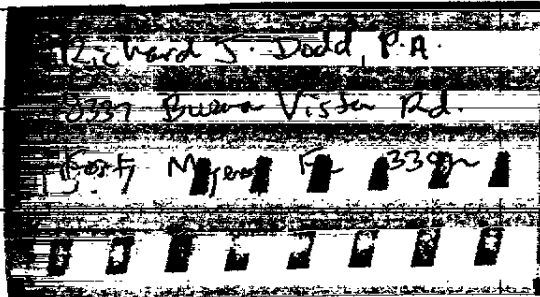 Richard J. Dodd, P.A.
8337 Buena Vista Rd.
Fort Myers FL